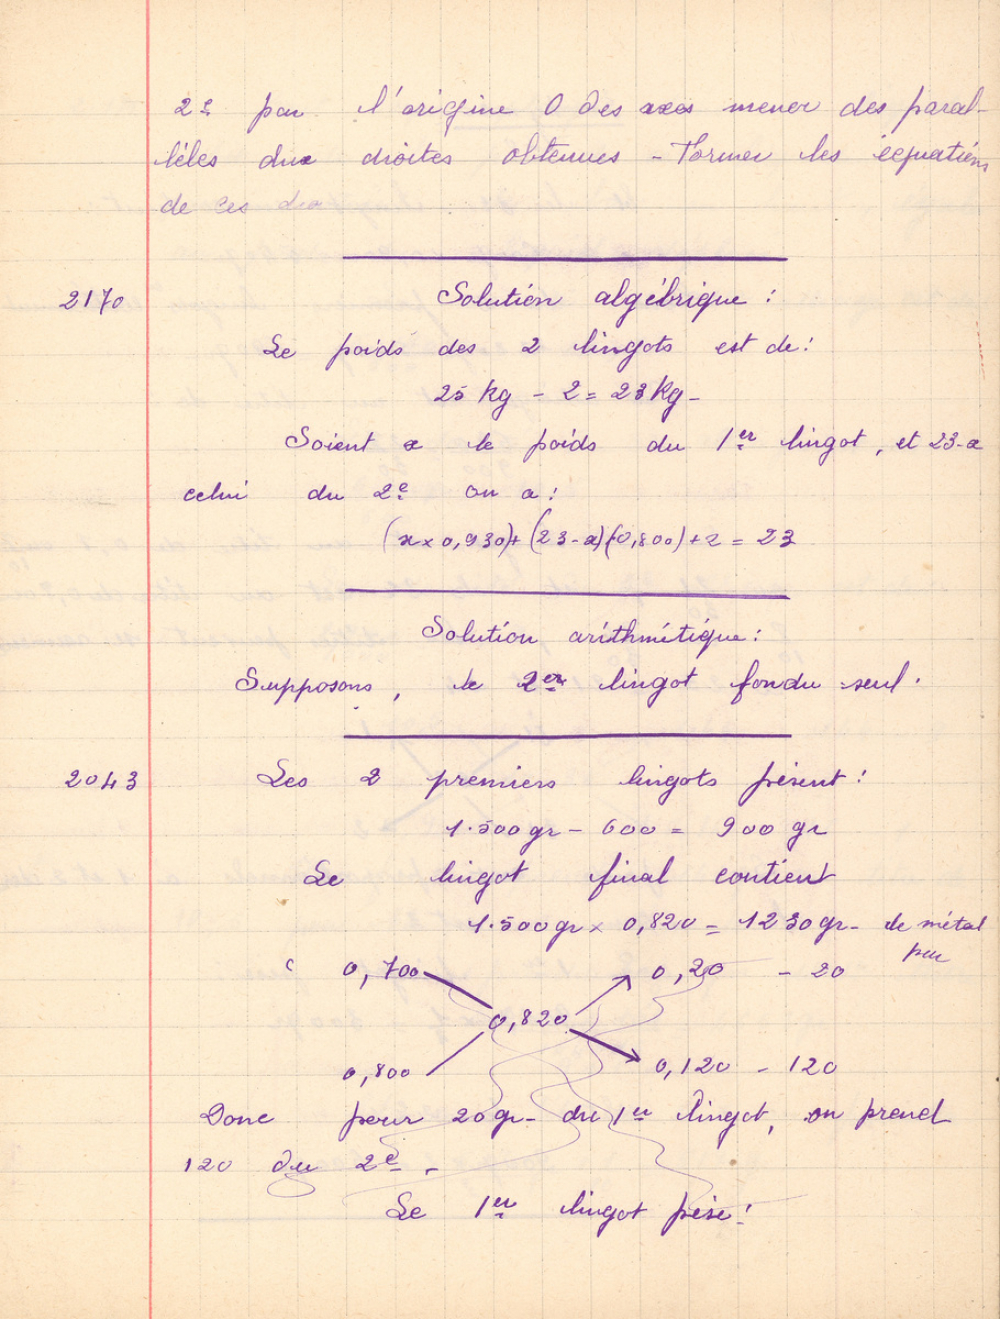 2º par l'origine O des axes mener des paral-
lèles aux droites obtenues - Former les équations
de ces dro
Solution algébrique :
2170
Le poids des 2 lingots est de :
25 kg - 2 = 23 kg -
Soient x le poids du 1er lingot, et 23-x
celui du 2e on a :
(x x 0,930)+(23-x)(0,800)+2 = 23
Solution arithmétique :
Supposons, le 2er lingot fondu seul.
2043
Les 2 premiers lingots pèsent :
1.500gr - 600 = 900 gr
Le lingot final contient
1.500gr x 0,820 = 1230gr - de métal
pur
0,700 0,20 - 20
0,820
0,800 0,120 - 120
Donc pour 20gr - du 1er lingot, on prend
120 du 2e -
Le 1er lingot pèse :